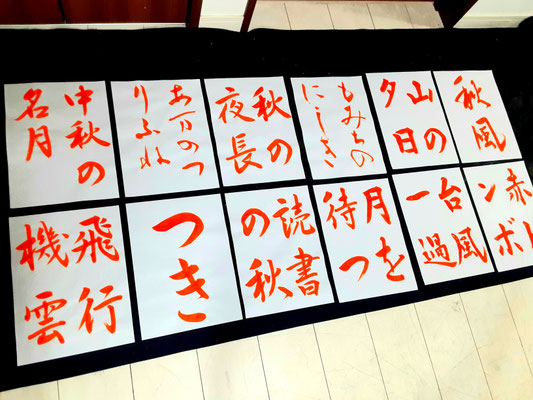 秋風
山の
夕日
もみちの
にしき
秋の
夜長
あ万のつ
りふね
中秋の
名月
赤ト
ンボ
台風
一過
月を
待つ
読書
の秋
つき
飛行
機雲